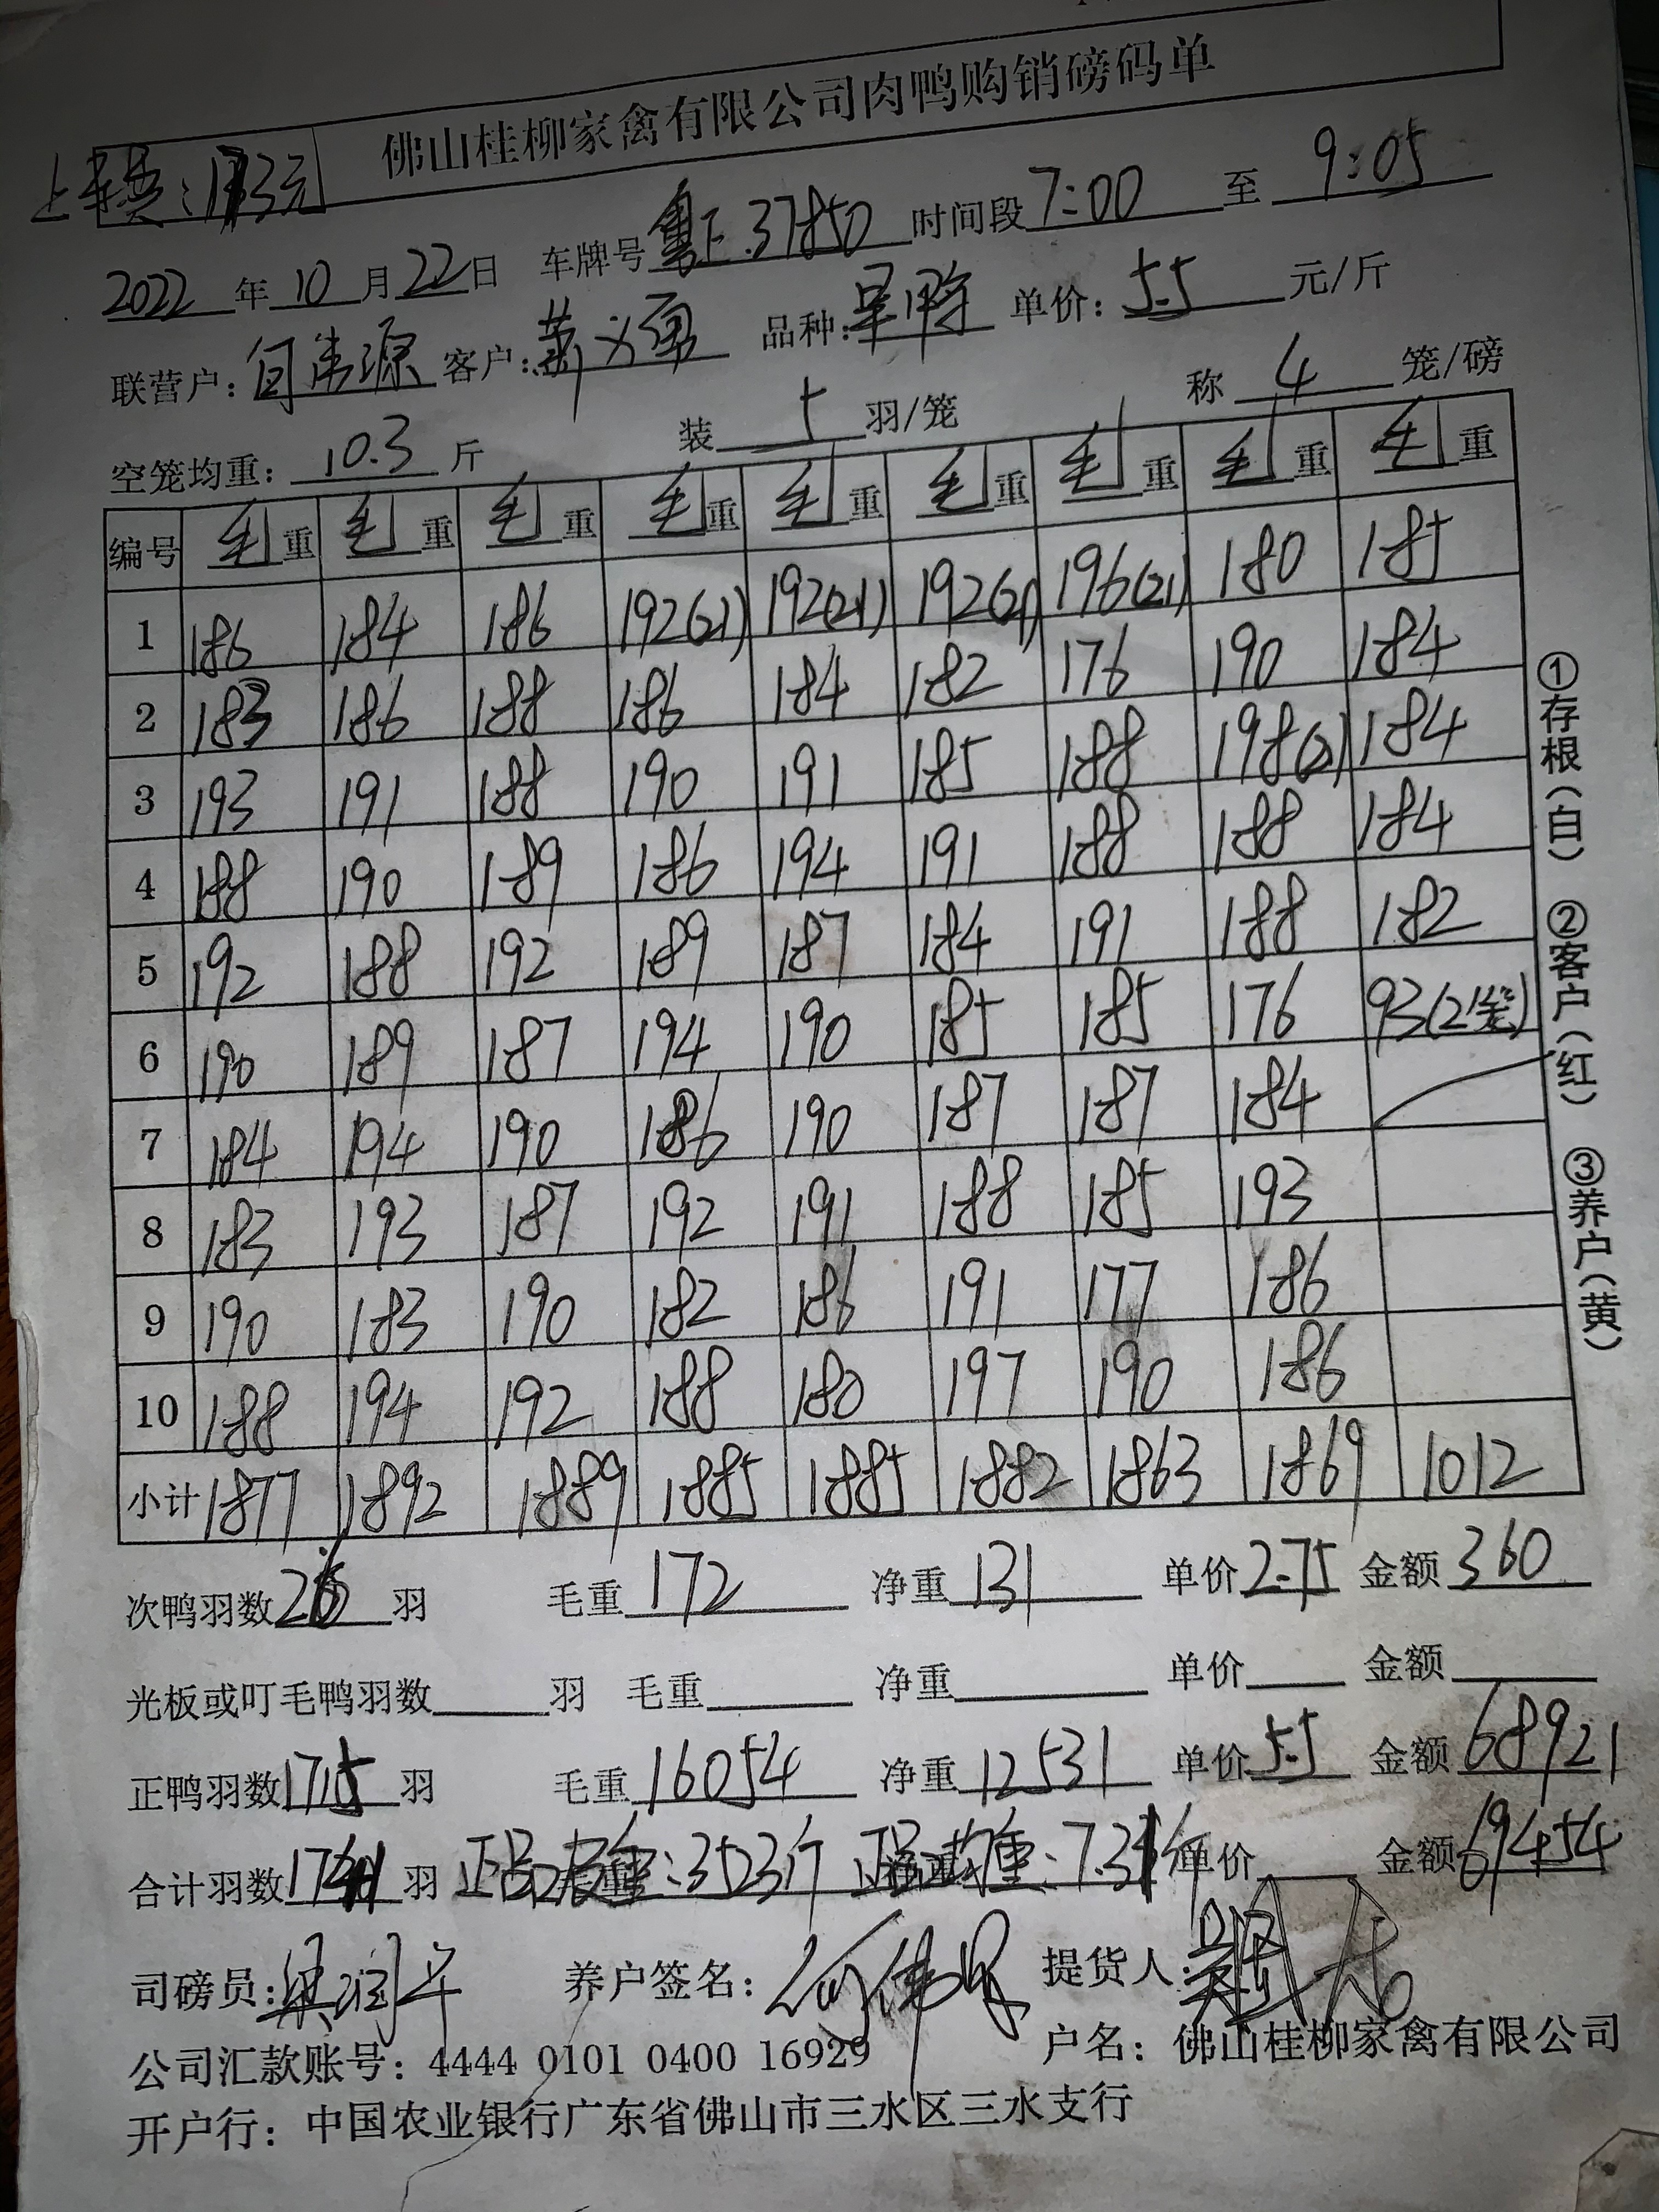 佛山桂柳家禽有限公司肉鸭购销磅码单
2022 年 10 月 22 日 车牌号 37850 时间段 7:00 至 9:05
联营户: 客户: 品种: 单价: 5.5 元/斤
空笼均重: 10.3 斤 装 5 羽/笼 称 4 笼/磅
编号 毛重 毛重 毛重 毛重 毛重 毛重 毛重 毛重 毛重
1 186 184 186 192(21) 192(21) 192(21) 196(21) 180 185
2 183 186 188 186 184 182 176 190 184
3 193 191 188 190 191 185 188 198(21) 184
4 188 190 189 186 194 191 188 188 184
5 192 188 192 189 187 184 191 188 182
6 190 189 187 194 190 185 185 176 93(2笼)
7 184 194 190 186 190 187 187 184
8 183 193 187 192 191 188 185 193
9 190 183 190 182 186 191 177 186
10 188 194 192 188 180 197 190 186
小计 1877 1892 1889 1885 1885 1882 1863 1869 1012
次鸭羽数 26 羽 毛重 172 净重 131 单价 2.75 金额 360
光板或叮毛鸭羽数 羽 毛重 净重 单价 金额
正鸭羽数 1715 羽 毛重 16054 净重 12531 单价 5.5 金额 68921
合计羽数 1741 羽 正品 重:3523斤 正品均重:7.31斤 单价 金额 69454
司磅员: 梁润平 养户签名: 提货人:
公司汇款账号: 4444 0101 0400 16929 户名: 佛山桂柳家禽有限公司
开户行: 中国农业银行广东省佛山市三水区三水支行
①存根(白) ②客户(红) ③养户(黄)